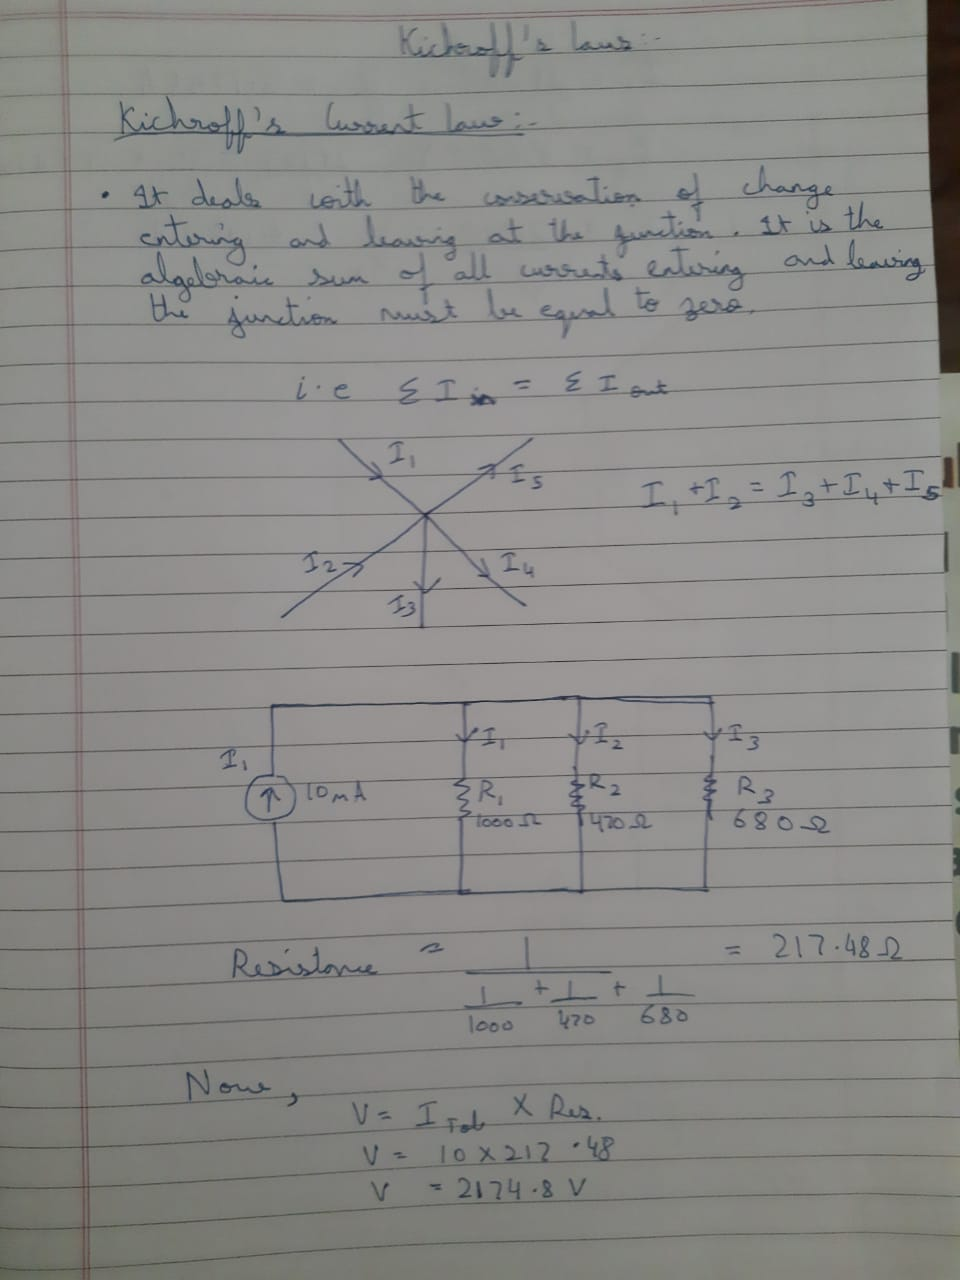 Kichroff's laws:-
Kichroff's Current laws:-
• It deals with the conservation of change
entering and leaving at the junction. It is the
algebraic sum of all currents entering and leaving
the junction must be equal to zero.
i.e Σ I in = Σ I out
I1
I5
I1 + I2 = I3 + I4 + I5
I2
I4
I3
I1
I2
I3
I1
10mA
R1
1000Ω
R2
470Ω
R3
680Ω
Resistance = 1 / (1/1000 + 1/470 + 1/680) = 217.48Ω
Now,
V = I Tot X Res.
V = 10 X 217.48
V = 2174.8 V